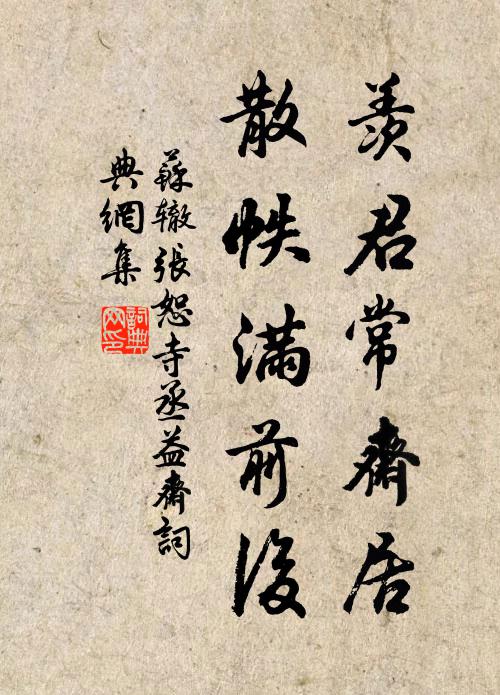 羨君常齋居
散帙滿前後
蘇轍張恕寺丞益齋詞
典網集
詞典網印